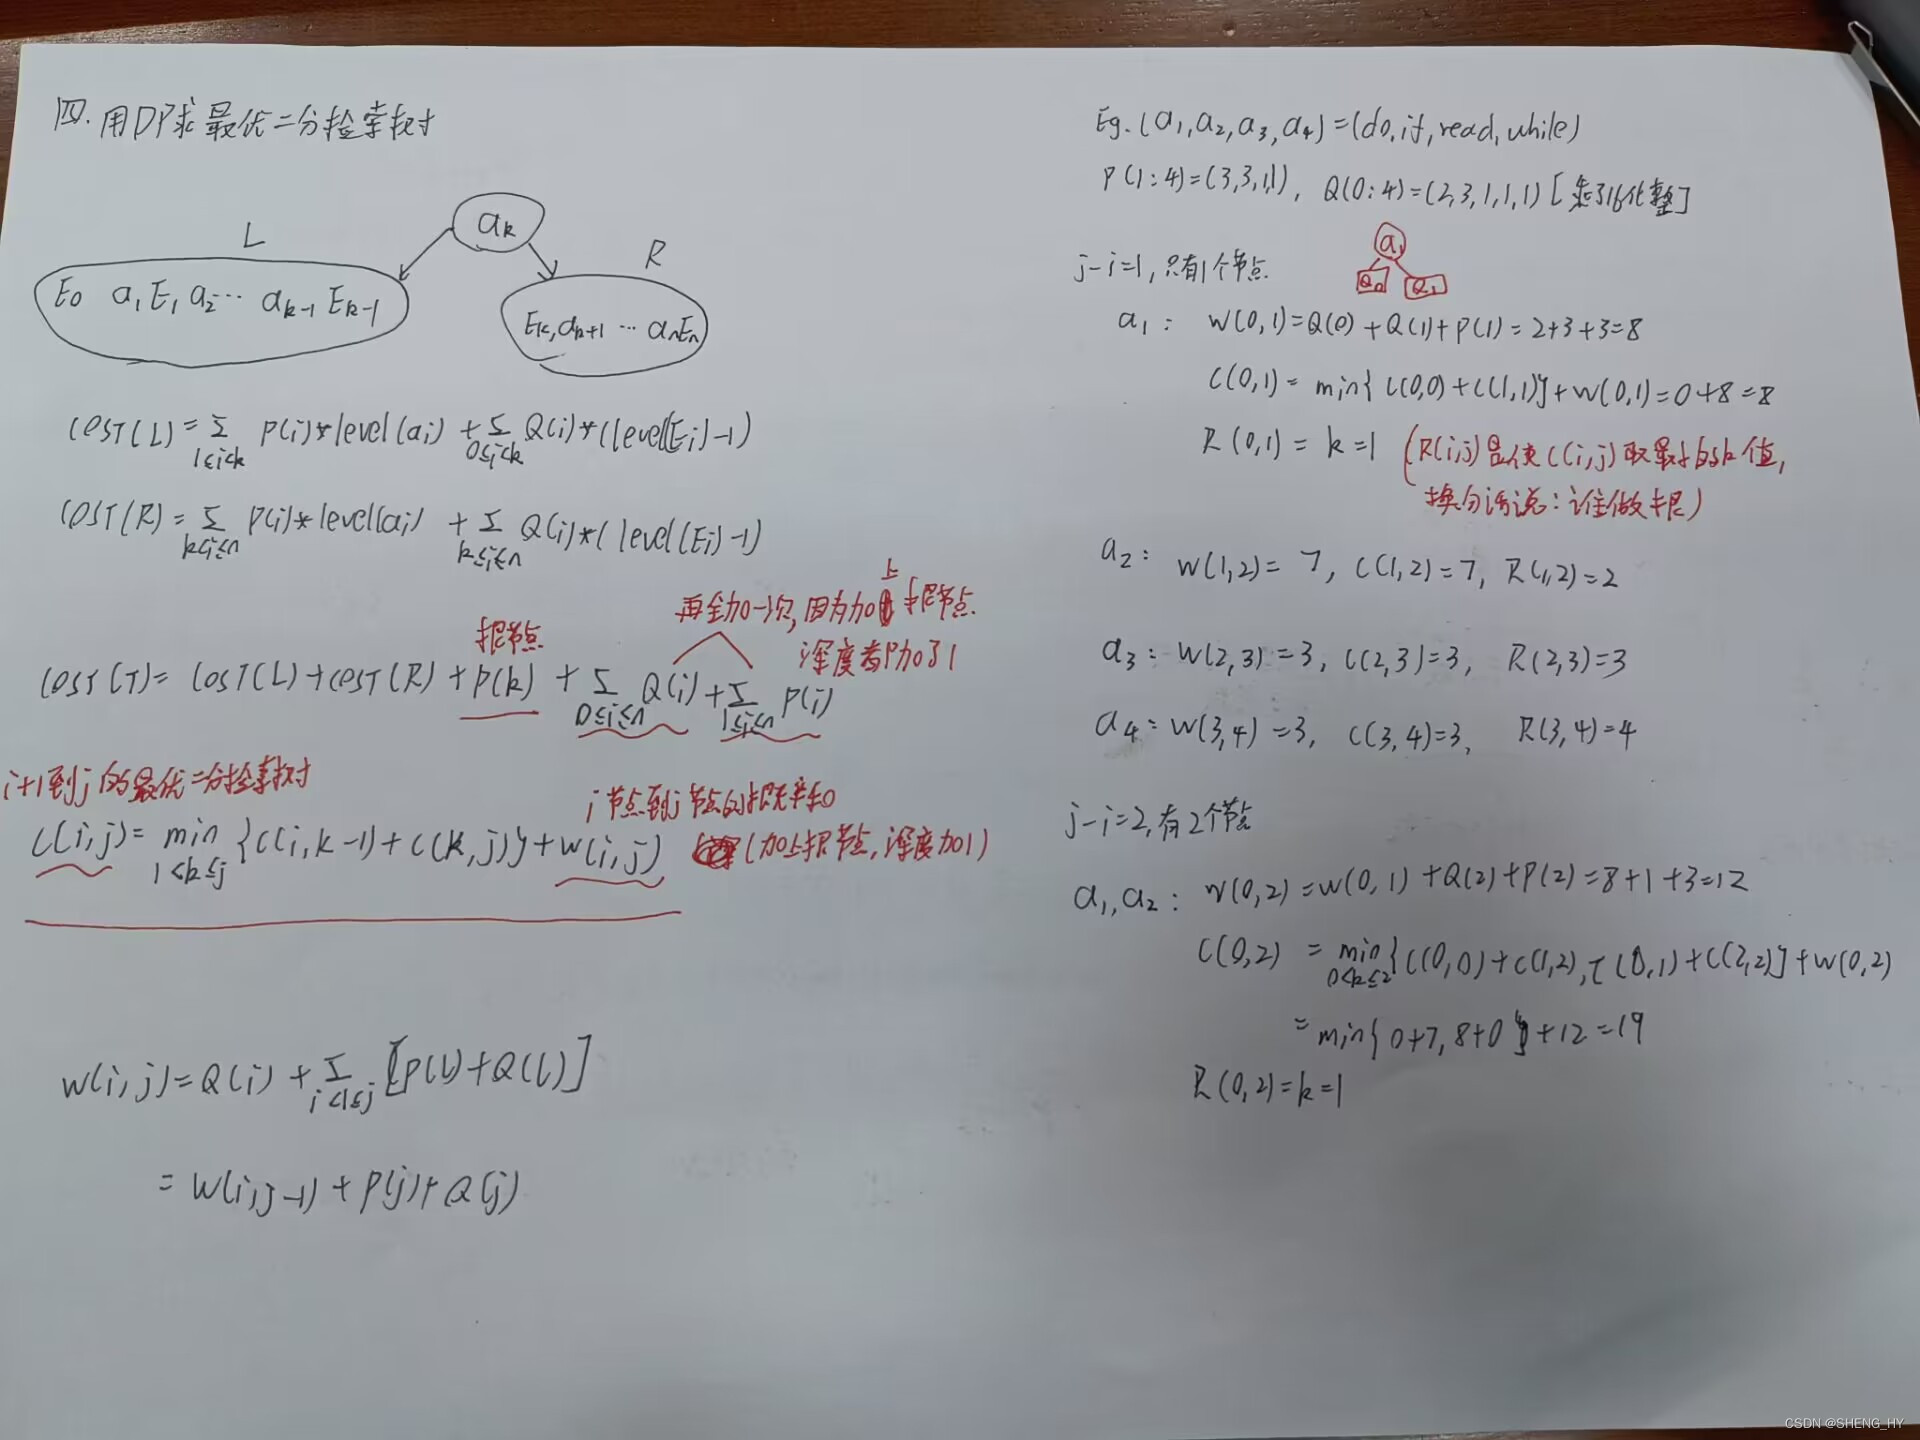 四. 用DP求最优二分检索树
ak
L
R
E0 a1 E1 a2 … ak-1 Ek-1
Ek, ak+1 … an En
COST(L) = Σ P(i)*level(ai) + Σ Q(i)*(level(Ei)-1)
1≤i<k 0≤i<k
COST(R) = Σ P(i)*level(ai) + Σ Q(i)*(level(Ei)-1)
k<i≤n k≤i≤n
再全加一次, 因为加上根节点
根节点 深度都加了1
COST(T) = COST(L)+COST(R)+P(k) + Σ Q(i) + Σ P(i)
0≤i≤n 1≤i≤n
i+1到j的最优二分检索树
i节点到j节点的概率和
C(i,j) = min {C(i,k-1)+C(k,j)}+W(i,j) (加上根节点,深度加1)
1<k≤j
W(i,j) = Q(i) + Σ [P(l)+Q(l)]
i<l≤j
= W(i,j-1) + P(j)+Q(j)
Eg. (a1,a2,a3,a4)=(do,if,read,while)
P(1:4)=(3,3,1,1), Q(0:4)=(2,3,1,1,1) [乘了16化整]
a1
j-i=1, 只有1个节点
Q0 Q1
a1: W(0,1)=Q(0)+Q(1)+P(1)=2+3+3=8
C(0,1) = min{C(0,0)+C(1,1)}+W(0,1)=0+8=8
R(0,1) = k=1 (R(i,j)是使C(i,j)取最小的k值,
换句话说:谁做根)
a2: W(1,2)= 7, C(1,2)=7, R(1,2)=2
a3: W(2,3)=3, C(2,3)=3, R(2,3)=3
a4: W(3,4)=3, C(3,4)=3, R(3,4)=4
j-i=2, 有2个节点
a1,a2: W(0,2)=W(0,1)+Q(2)+P(2)=8+1+3=12
C(0,2) = min {C(0,0)+C(1,2), C(0,1)+C(2,2)}+W(0,2)
0<k≤2
= min{0+7, 8+0}+12=19
R(0,2)=k=1
CSDN @SHENG_HY